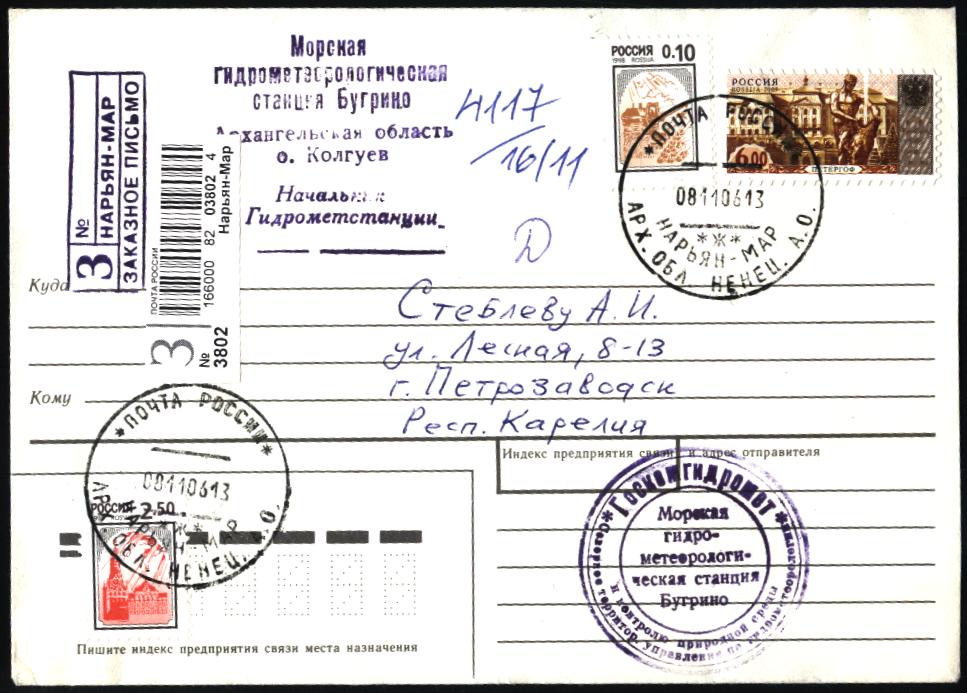 Морская
гидрометеорологическая
станция Бугрино
Архангельская область
о. Колгуев
Начальник
Гидрометстанции
4117
16/11
Д
РОССИЯ 0.10
1998 ROSSIJA
РОССИЯ
6.00
ПЕТЕРГОФ
*ПОЧТА РОССИИ*
08110613
*Ж*
НАРЬЯН-МАР
АРХ. ОБЛ. НЕНЕЦ. А.О.
З
№
НАРЬЯН-МАР
ЗАКАЗНОЕ ПИСЬМО
ПОЧТА РОССИИ
166000 82 03802 4
Нарьян-Мар
З
№
3802
Куда
Стеблеву А.И.
ул. Лесная, 8-13
г. Петрозаводск
Кому
Респ. Карелия
Индекс предприятия связи и адрес отправителя
*ПОЧТА РОССИИ*
08110613
*Ж*
НАРЬЯН-МАР
АРХ. ОБЛ. НЕНЕЦ. А.О.
РОССИЯ 2.50
*Госкомгидромет*
Морская
гидро-
метеорологи-
ческая станция
Бугрино
и контролю природной среды
территор. управление по гидрометеорологии
Пишите индекс предприятия связи места назначения